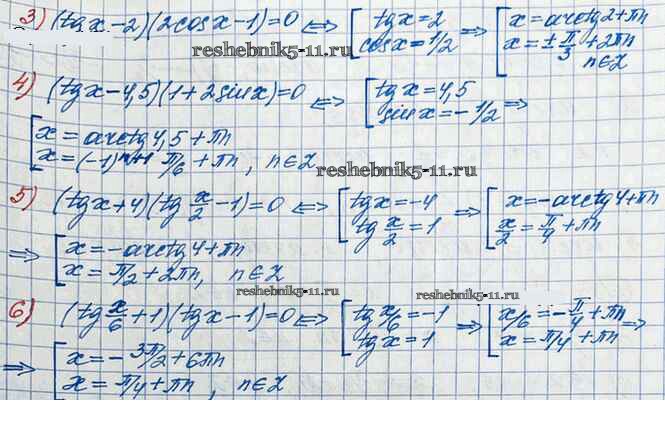 3) (tgx-2)(2cosx-1)=0 <=> [tgx=2 => [x=arctg2+πn
cosx=1/2 x=±π/3+2πn
reshebnik5-11.ru n∈Z
4) (tgx-4,5)(1+2sinx)=0 <=> [tgx=4,5
sinx=-1/2 =>
[x=arctg4,5+πn
x=(-1)ⁿ⁺¹ π/6+πn, n∈Z reshebnik5-11.ru
5) (tgx+4)(tg x/2 -1)=0 <=> [tgx=-4 => [x=-arctg4+πn
tg x/2=1 x/2=π/4+πn
=> [x=-arctg4+πn
x=π/2+2πn, n∈Z
reshebnik5-11.ru reshebnik5-11.ru
6) (tg x/6+1)(tgx-1)=0 <=> [tg x/6=-1 => [x/6=-π/4+πn
tgx=1 x=π/4+πn =>
=> [x=-3π/2+6πn
x=π/4+πn, n∈Z